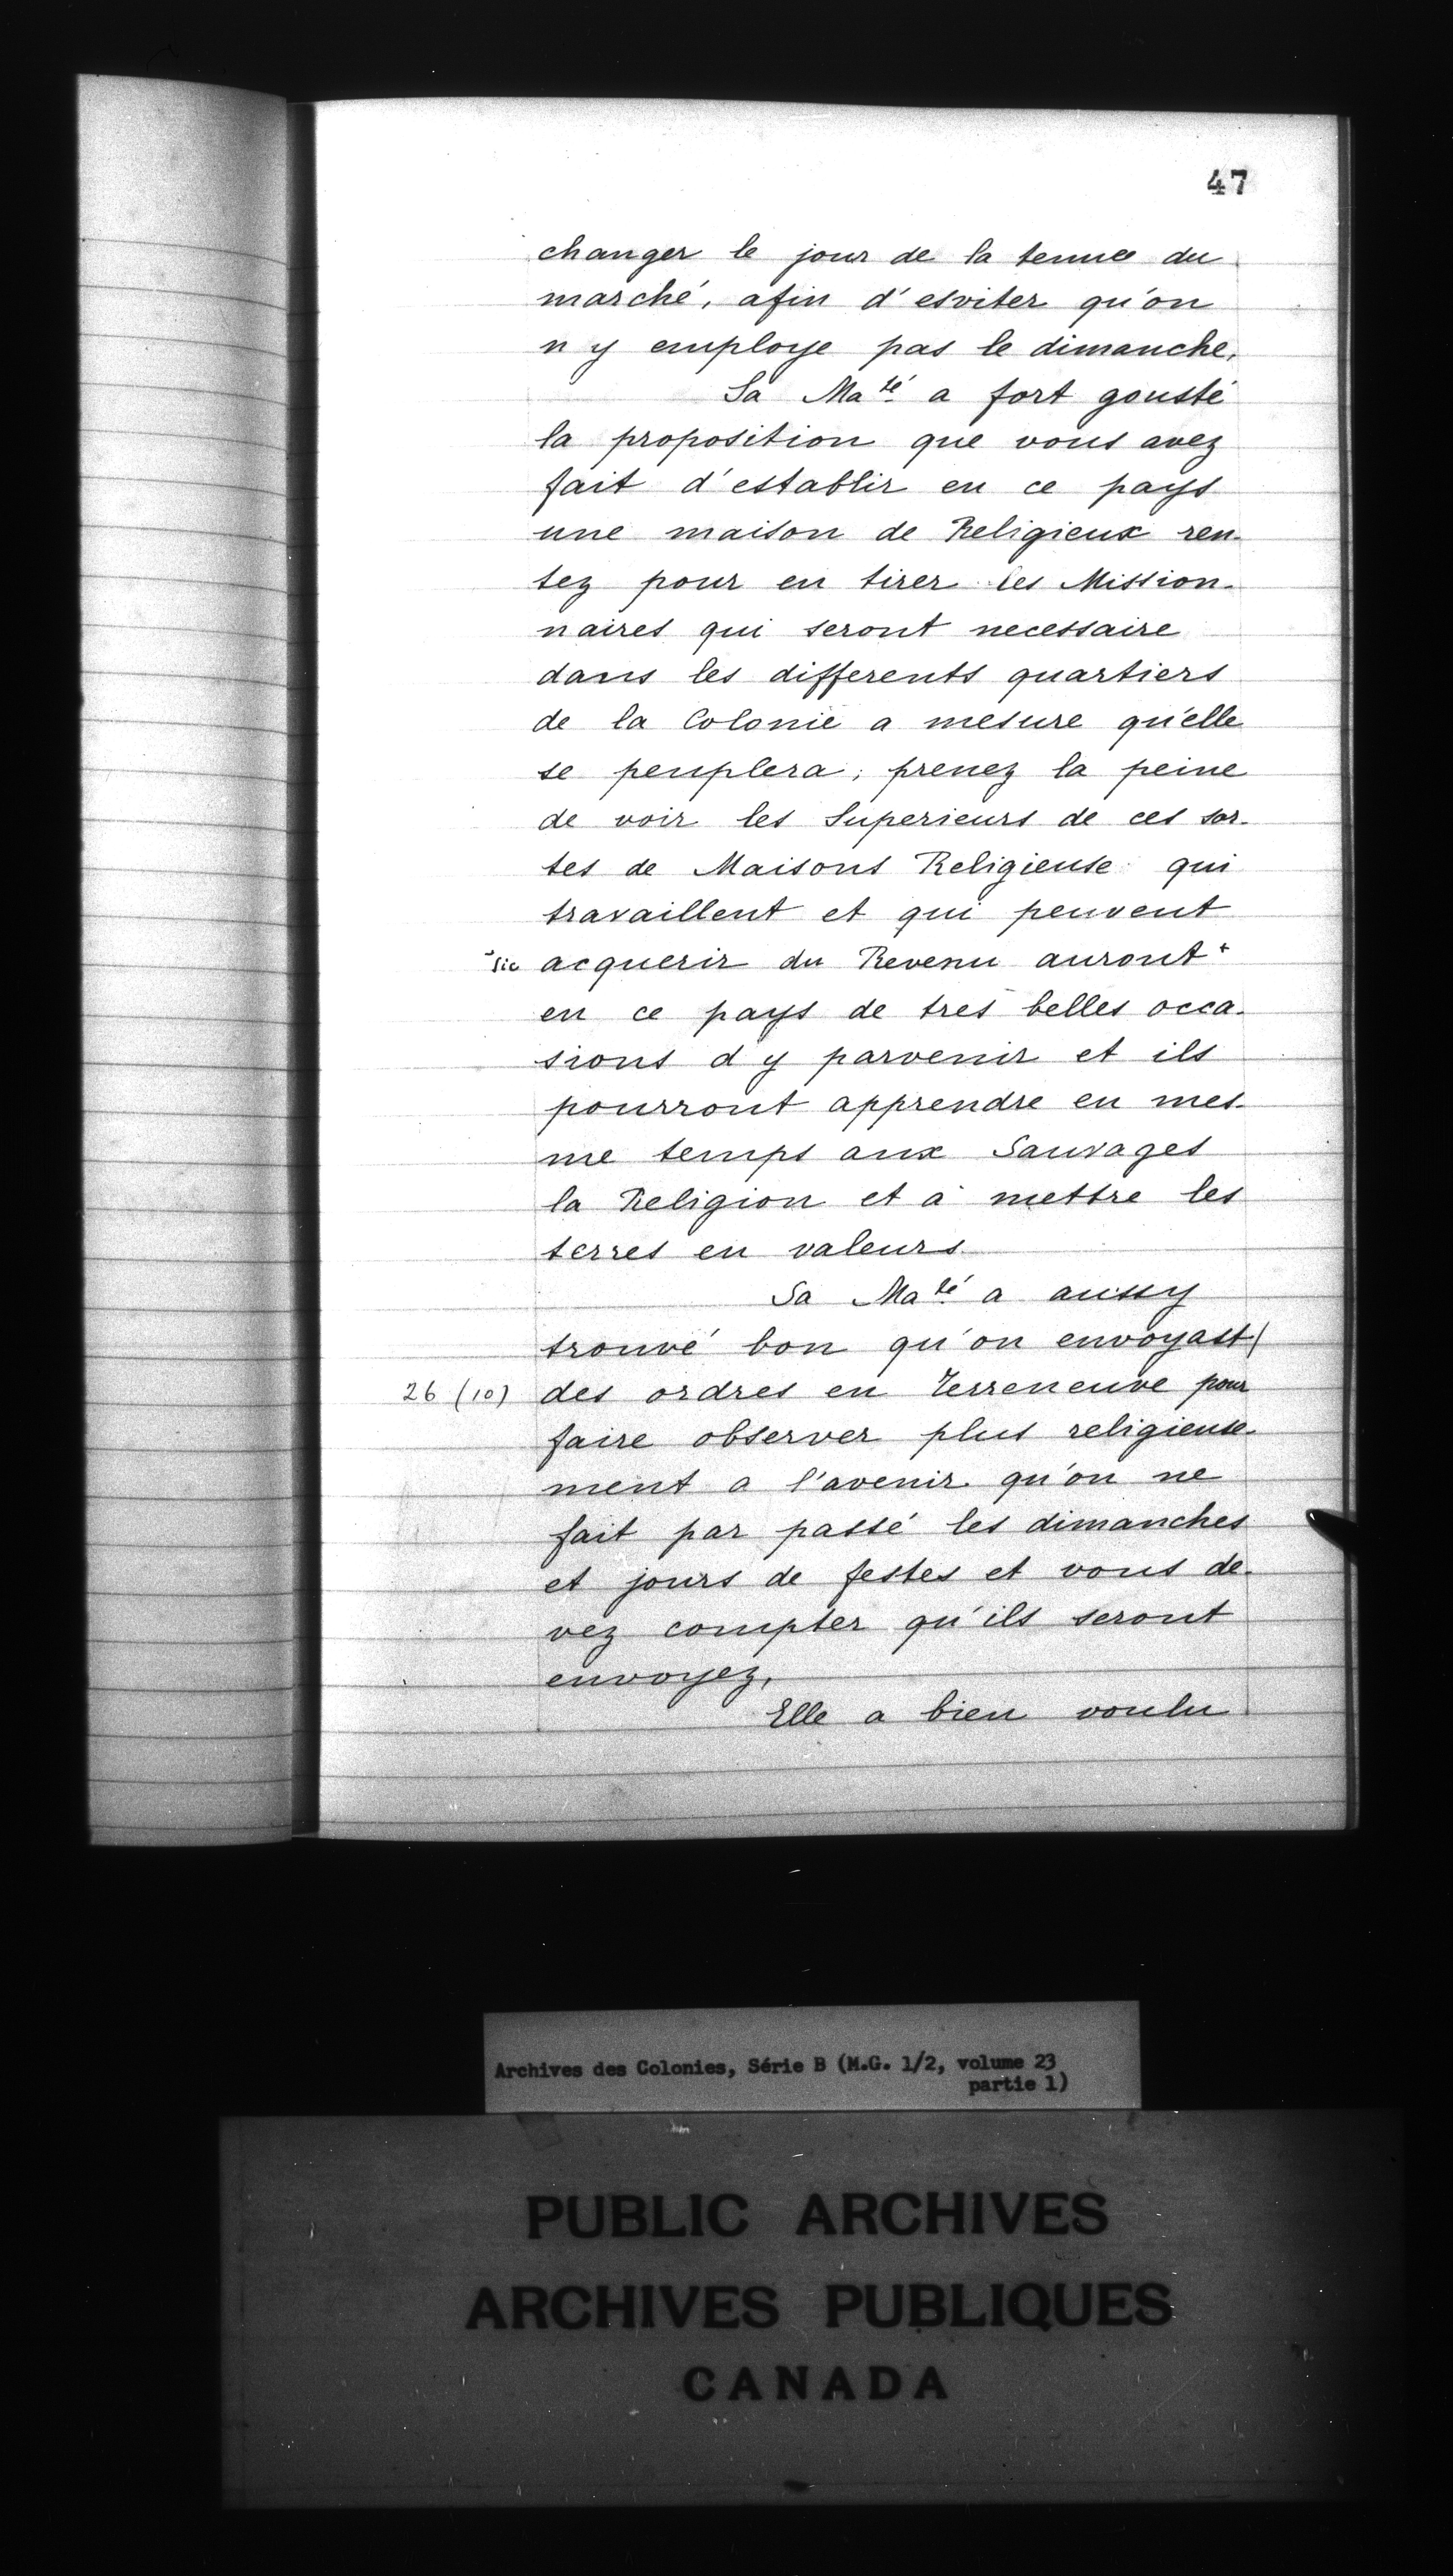 47
changer le jour de la tenue du
marché, afin d'esviter qu'on
n y employe pas le dimanche,
Sa Ma.té a fort gousté
la proposition que vous avez
fait d'establir en ce pays
une maison de Religieux ren-
tez pour en tirer les Mission-
naires qui seront necessaire
dans les differents quartiers
de la Colonie a mesure qu'elle
se peuplera; prenez la peine
de voir les Superieurs de ces sor-
tes de Maisons Religieuse qui
travaillent et qui peuvent
+sic acquerir du Revenu auront+
en ce pays de tres belles occa-
sions d y parvenir et ils
pourront apprendre en mes-
me temps aux Sauvages
la Religion et à mettre les
terres en valeurs.
Sa Ma.té a aussy
trouvé bon qu'on envoyast/
26 (10) des ordres en Terreneuve pour
faire observer plus religieuse-
ment a l'avenir qu'on ne
fait par passé les dimanches
et jours de festes et vous de-
vez compter qu'ils seront
envoyez,
Elle a bien voulu
Archives des Colonies, Série B (M.G. 1/2, volume 23
partie 1)
PUBLIC ARCHIVES
ARCHIVES PUBLIQUES
CANADA